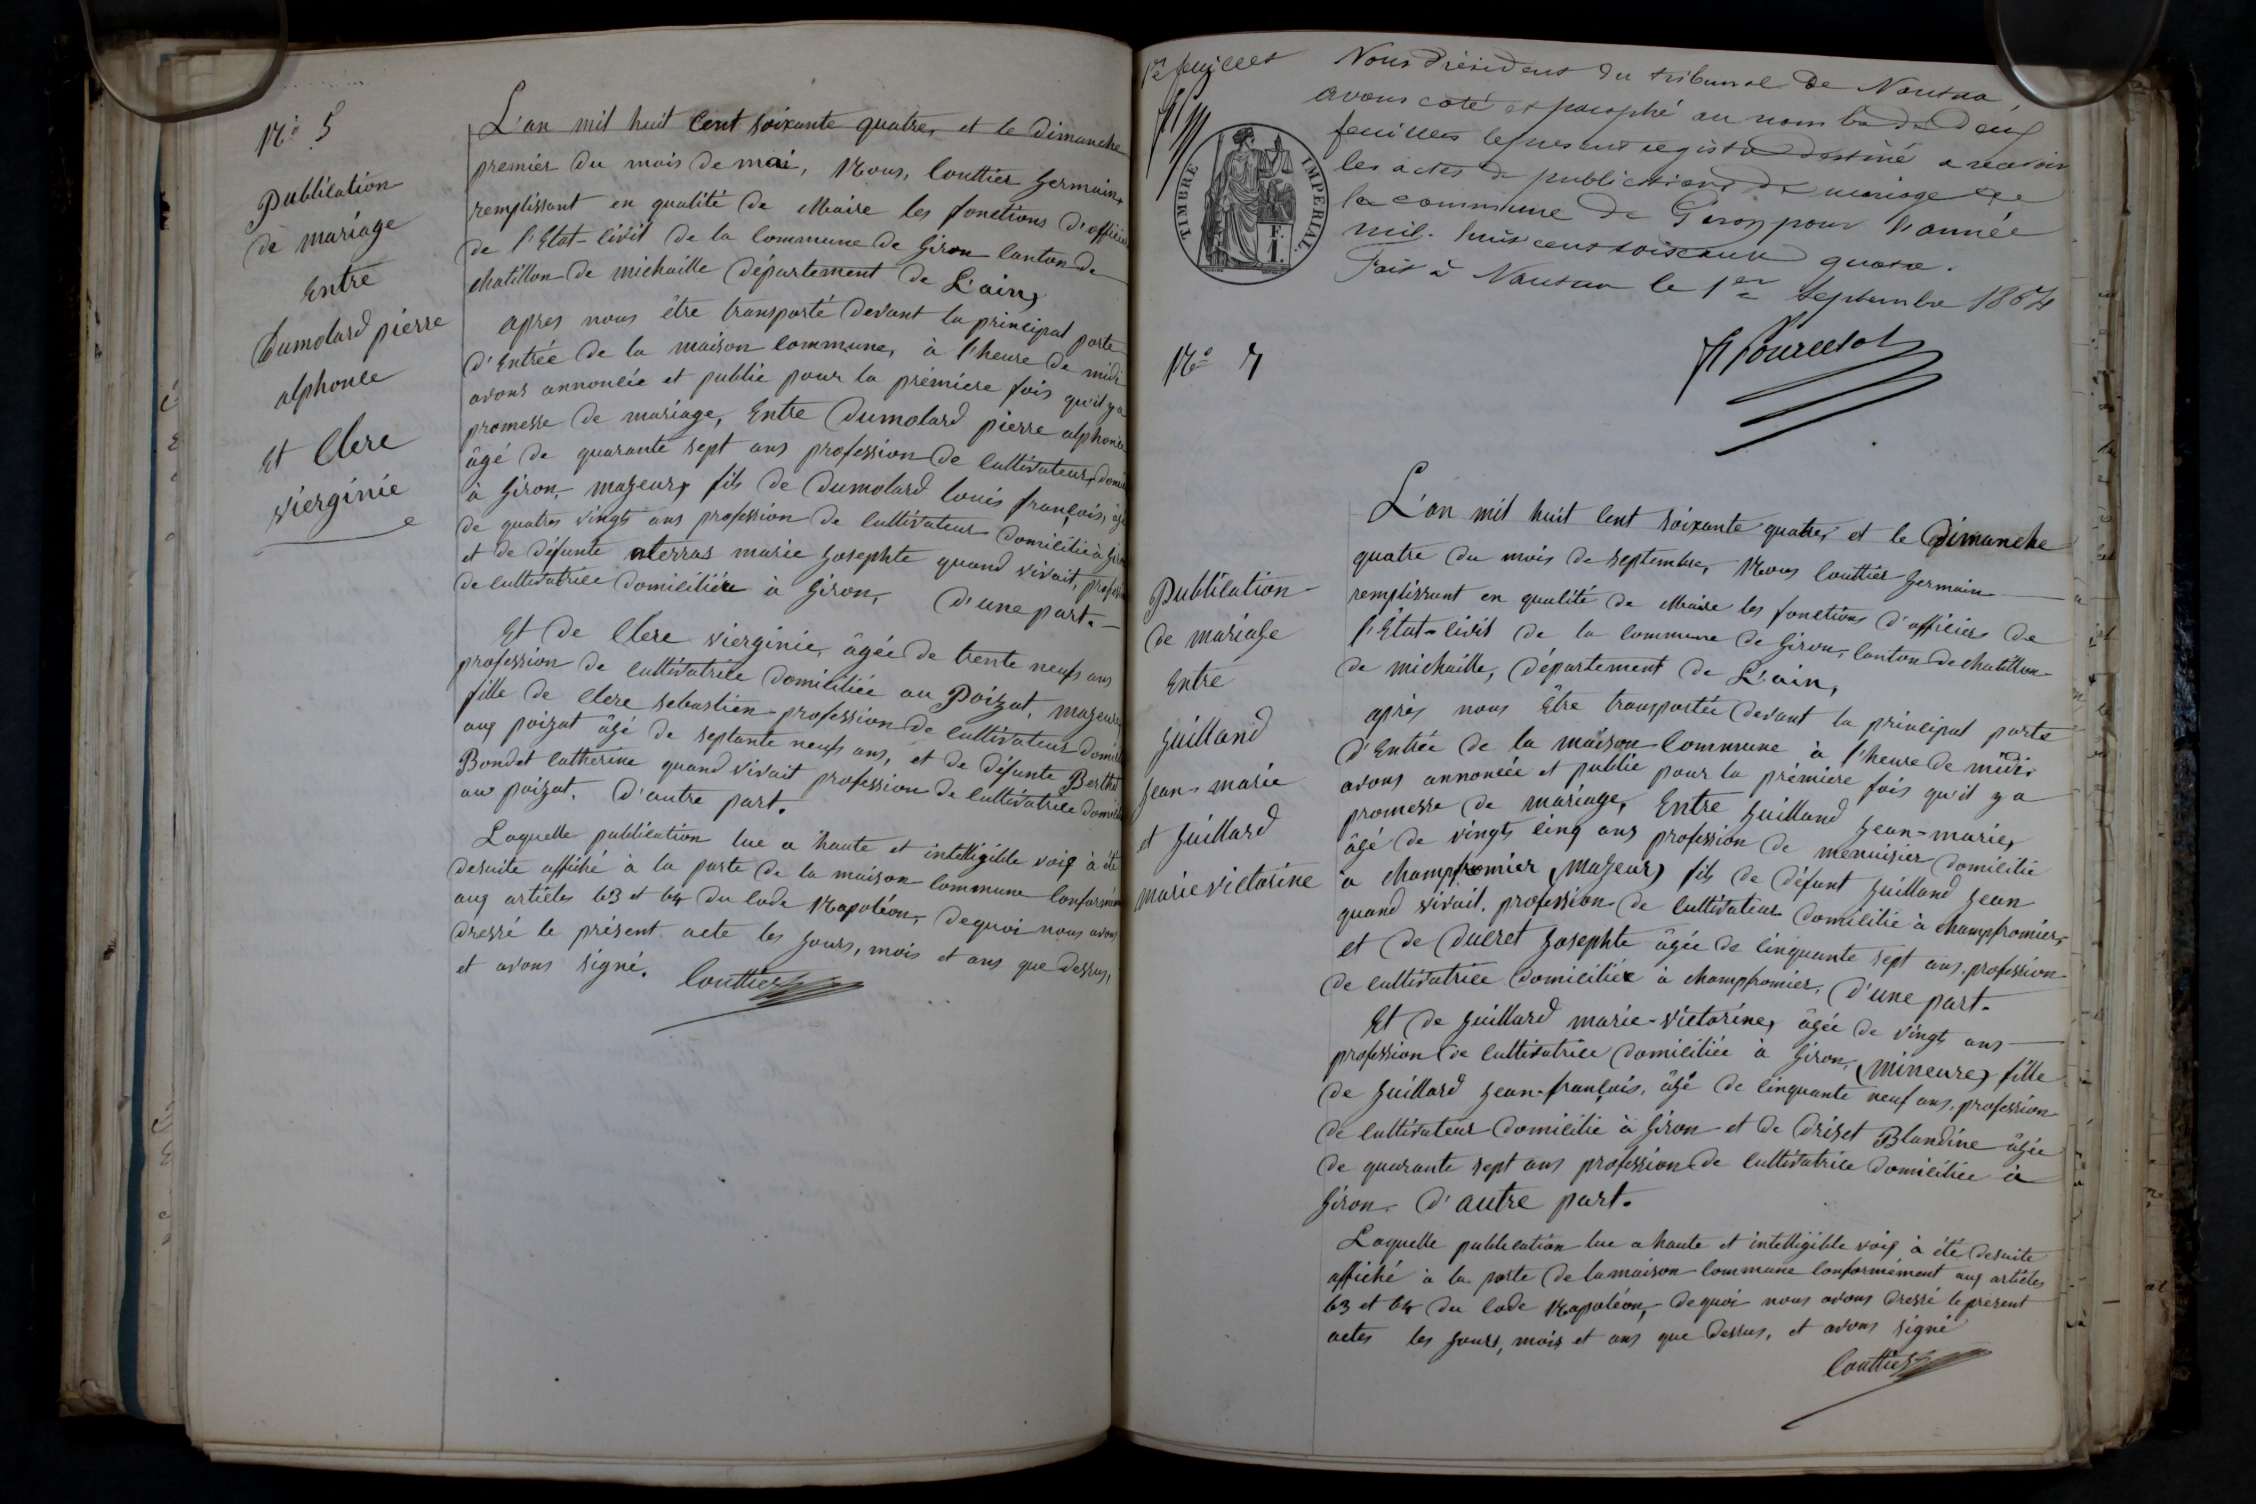 N° 5
Publication
de mariage
Entre
Dumolard pierre
alphonce
Et Clere
vierginie
L'an mil huit Cent soixante quatre, et le dimanche
premier du mois de mai, Nous, Couttier Germain,
remplissant en qualité de Maire les fonctions d'officier
de l'Etat-Civil de la Commune de Giron Canton de
chatillon-de michaille département de L'ain,
apres nous être transporté devant la principal porte
d'Entrée de la maison Commune, à l'heure de midi
avons annoncée et publié pour la prémière fois qu'il y a
promesse de mariage, Entre Dumolard pierre alphonce
âgé de quarante sept ans profession de Cultivateur, domi
à Giron, majeur, fils de Dumolard Louis françois, âgé
de quatres vingts ans profession de Cultivateur domicilié à Giron
et de défunte Merras marie Josephte quand vivait, profession
de Cultivatrice domiciliée à Giron, D'une part.
Et de Clere vierginie, âgée de trente neufs ans
profession de Cultivatrice domiciliée au Poizat, majeure,
fille de Clere sebastien profession de Cultivateur domicilié
aux poizat âgé de septante neufs ans, et de défunte Berthet
Bondet Catherine quand vivait profession de Cultivatrice domicil
au poizat, D'autre part.
Laquelle publication lue a haute et intelligible voix à été
desuite affiché à la porte de la maison Commune Conformém
aux articles 63 et 64 du Code Napoléon, dequoi nous avons
dressé le présent acte les jours, mois et ans que dessus,
et avons signé. Couttier
1er feuillet
Nous Président du tribunal de Nantua,
avons coté et paraphé au nombre de deux
feuilles le présent registre destiné a recevoir
les actes de publications de mariage de
la commune de Giron pour l'année
mil huit cent soixante quatre.
Fait à Nantua le 1er Septembre 1864
TIMBRE IMPERIAL.
F. 1.
N° 7
Publication
de mariage
Entre
Guilland
Jean-marie
et Guillard
marie victorine
L'an mil huit Cent soixante quatre, et le Dimanche
quatre du mois de septembre, Nous Couttier Germain
remplissant en qualité de Maire les fonctions d'officier de
l'Etat-Civil de la Commune de Giron, Canton de chatillon
de michaille, département de L'ain,
après nous être transportée devant la principal porte
d'Entrée de la maison Commune à l'heure de midi,
avons annoncée et publié pour la prémière fois qu'il y a
promesse de mariage, Entre Guilland Jean-marie,
âgé de vingts Cinq ans profession de menuisier domicilié
a champfromier (majeur) fils de défunt Guilland Jean
quand vivait, profession de Cultivateur domicilié à champfromier,
et de Ducret Josephte âgée de Cinquante sept ans, profession
de Cultivatrice domiciliée à champfromier, D'une part.
Et de Guillard marie-victorine, âgée de vingt ans
profession de Cultivatrice domiciliée à Giron, (mineure) fille
de Guillard Jean-françois, âgé de Cinquante neuf ans, profession
de Cultivateur domicilié à Giron et de Driset Blandine âgée
de quarante sept ans profession de Cultivatrice domiciliée à
Giron, D'autre part.
Laquelle publication lue a haute et intelligible voix à été desuite
affiché à la porte de la maison Commune Conformément aux articles
63 et 64 du Code Napoléon, dequoi nous avons dressé le présent
actes les jours, mois et ans que dessus, et avons signé
Couttier